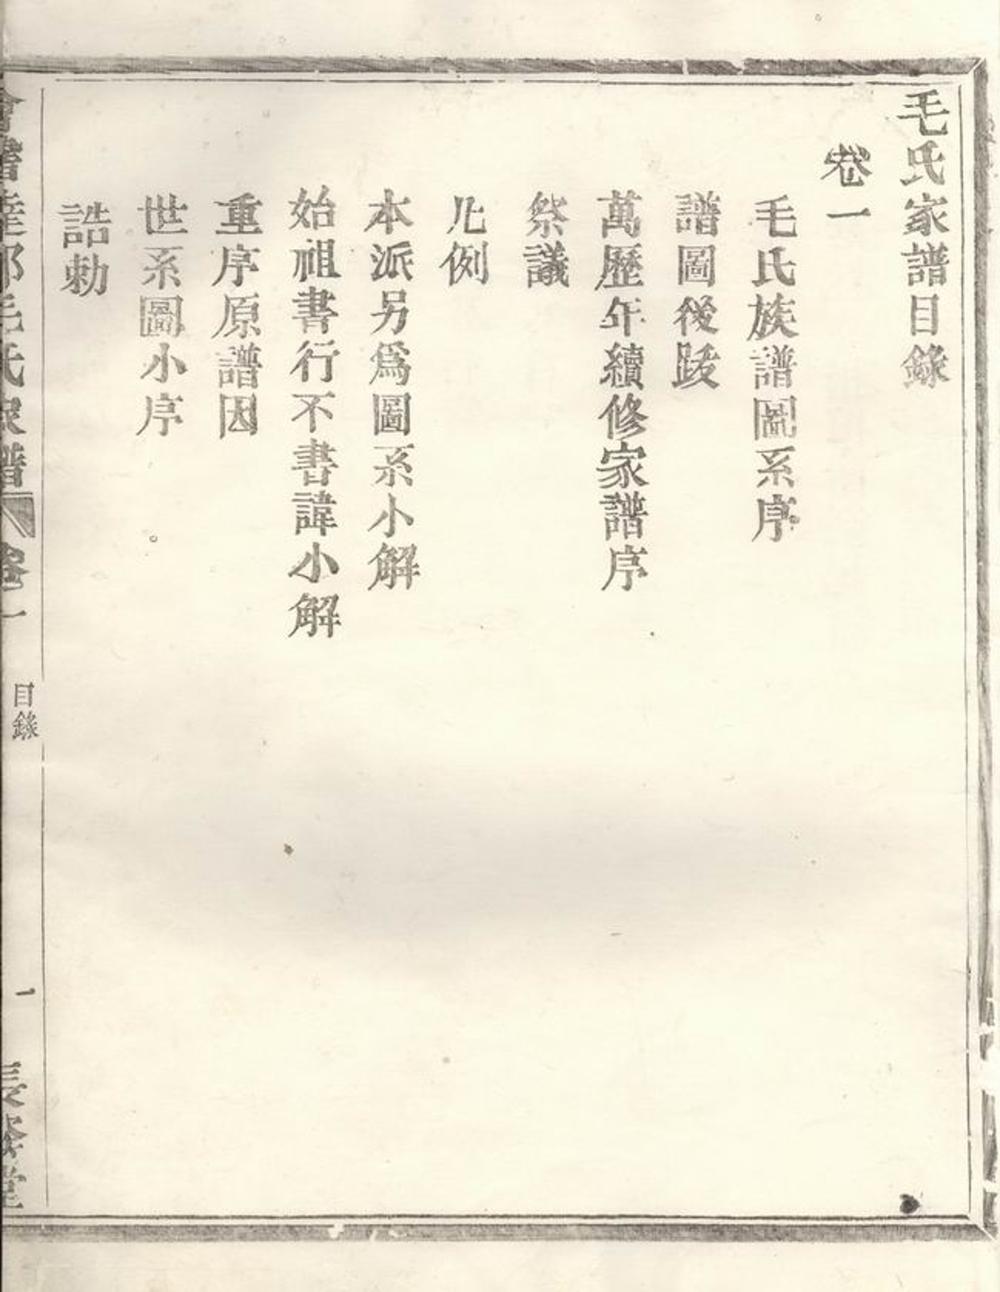 毛氏家譜目錄
卷一
毛氏族譜圖系序
譜圖後跋
萬歷年續修家譜序
祭議
凡例
本派另爲圖系小解
始祖書行不書諱小解
重序原譜因
世系圖小序
誥勅
毛氏家譜
卷一
目錄
一
長發堂